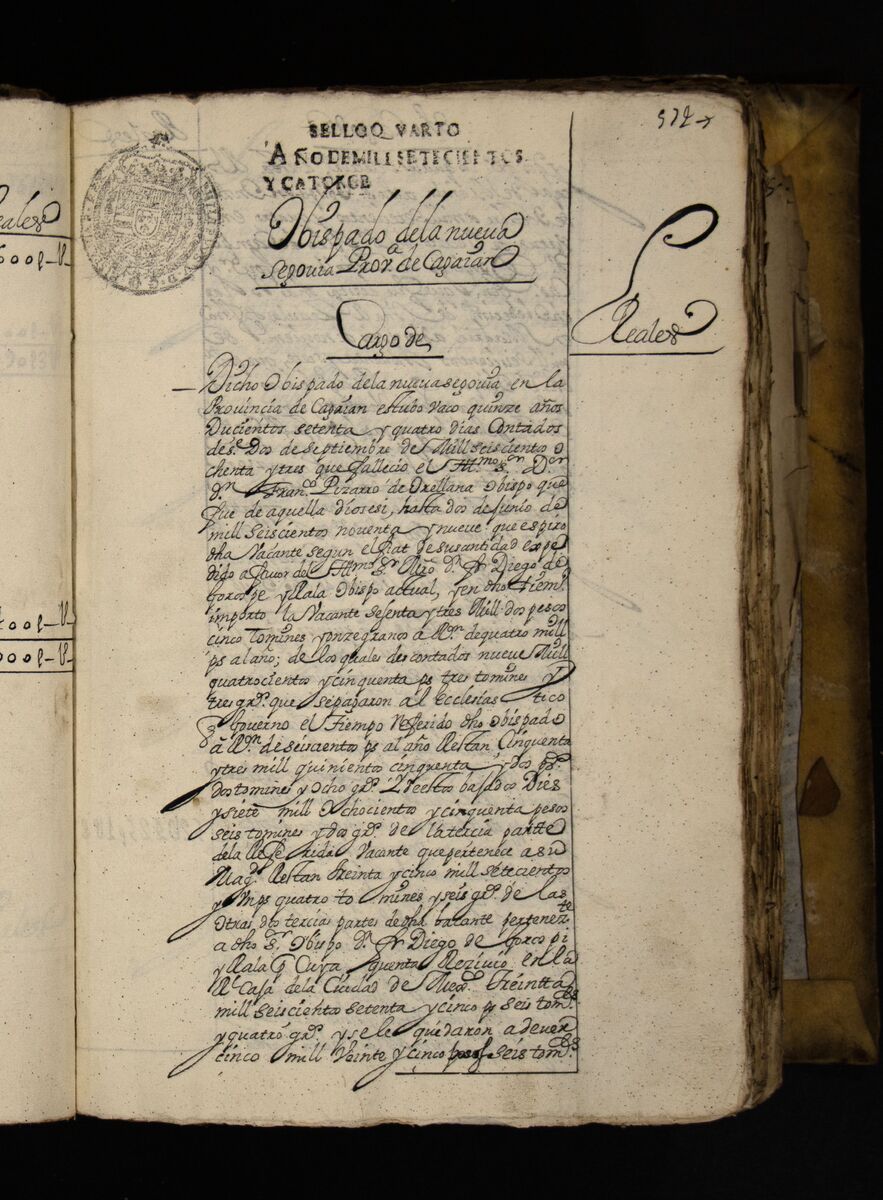 572
SELLO QVARTO
AÑO DE MILL SETECIENTOS
Y CATORCE
Obispado dela nueva
segouia Prov.a de Cagaian
Reales
Cargo de
Dicho Obispado dela nueua segouia en la
Provincia de Cagaian estubo vaco quinze años
Ducientos setenta y quatro dias Contados
des.e Dos de septiembre de Mill seiscientos o
chenta y tres que fallecio el Ill.mo s.or D.or
D.n Fran.co Pizarro de Orellana Obispo que
fue de aquella diosesi, hasta dos de Junio de
mill seiscientos noventa y nueve que espiro
dha Vacante segun el fiat de su santidad expe
dido a fauor del Ill.mo S.r Mro D.n fr Diego de
Gorospe y Yrala Obispo actual, y en dho tiem.o
importo la Vacante sesenta y tres Mill dos pesos
cinco tomines y onze granos a R.on de quatro mill
ps al año; de los quales descontados nueve Mill
quatrocientos y cinquenta ps tres tomines y
tres gr.s que se pagaron al Ecclesias tico
q Governo el tiempo Referido dho obispado
a R.on de seiscientos ps al año Restan Cinquenta
y tres mill quinientos cinquenta y dos ps.
dos tomines y ocho gr.s Y de estos bajados Dies
y siete mill ochocientos y cinquenta pesos
seis tomines y dos gr.s de la tercia partte
de la Referida Vacante que pertenece a su
Mag.d Restan treinta y cinco mill setecientos
y un ps quatro to mines y seis gr.s de las
otras dos tercias partes de dha bacante pertenez.te
a dho s.r Obispo D.n fr Diego de Gorospi
y Yrala p Cuya quenta Reziuio en la
R.l Caja dela Ciudad de Mex.co Treintta
mill seiscientos setenta y cinco ps seis tom.es
y quatro gr.s y se le quedaron a dever
cinco mill Veinte y cinco pesos seis tom.es